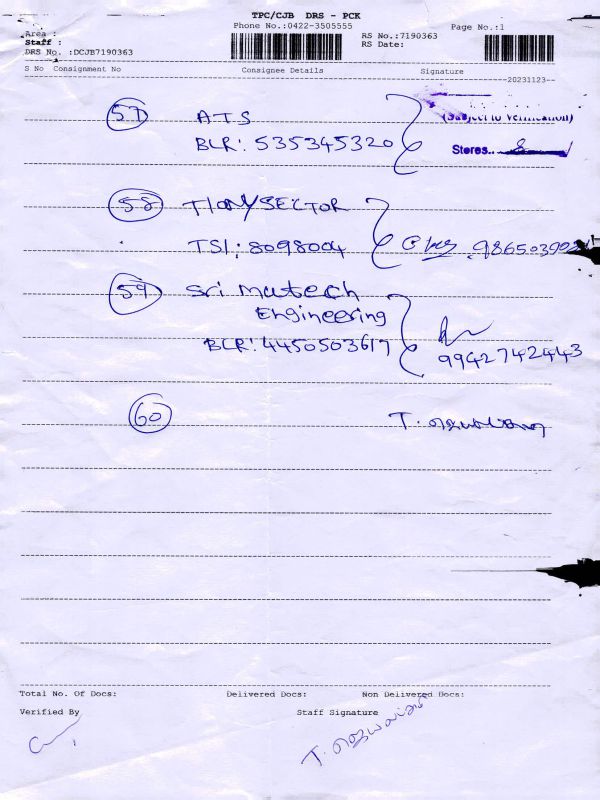 TPC/CJB DRS - PCK
Phone No.:0422-3505555
Page No.:1
Area :
RS No.:7190363
Staff :
RS Date:
DRS No. :DCJB7190363
S No Consignment No Consignee Details Signature
20231123
57 ATS
BLR: 535345320
(Subject to Verification)
Stores..
58
TSI: 8098004
59 Sri Matech
Engineering
BLR: 4450503617
9942742443
60
Total No. Of Docs: Delivered Docs: Non Delivered Docs:
Verified By Staff Signature